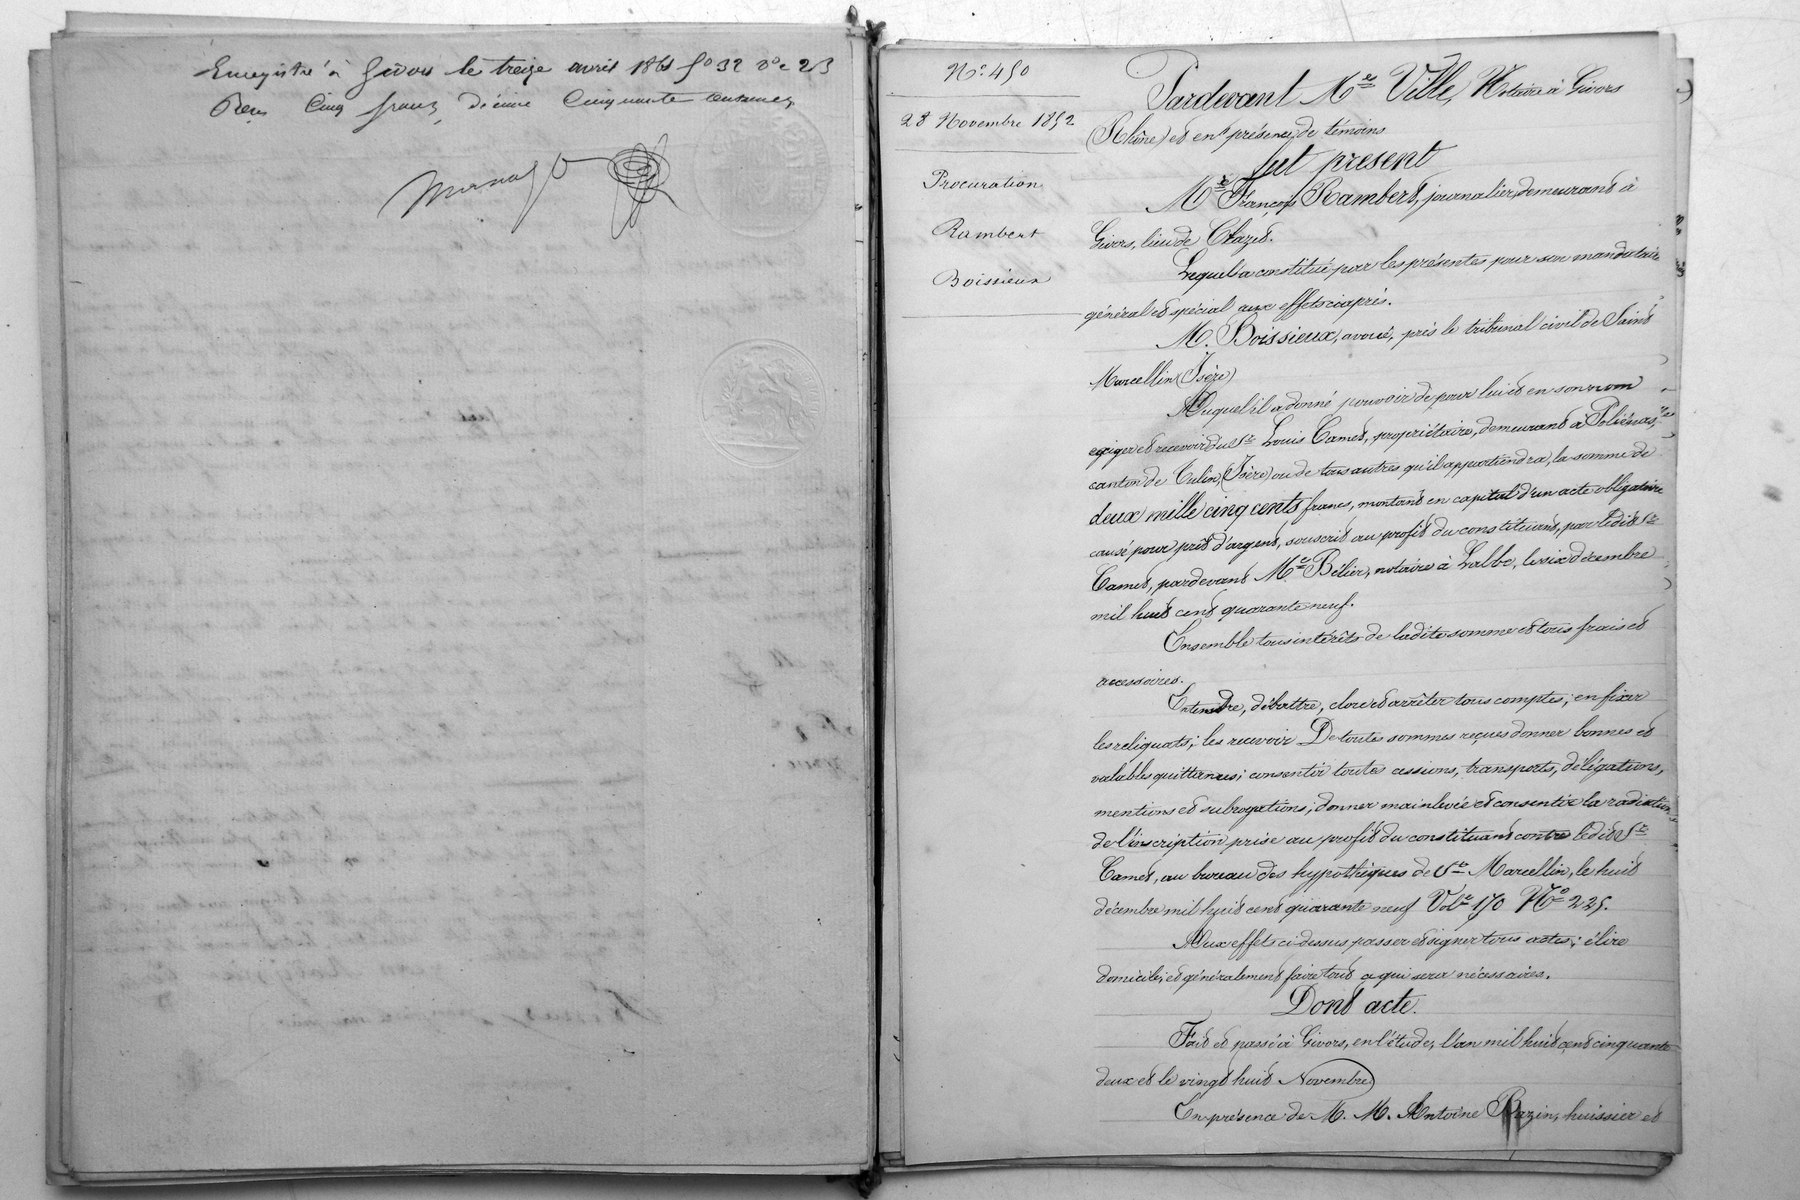 Enregistré à Givors le treize avril 1861 f° 32 v° c 2/3
Reçu cinq francs, décime cinquante centimes
N° 450
28 Novembre 1852
Procuration
Rambert
Boissieux
Pardevant Me Ville, Notaire à Givors
(Rhône) et en présence de témoins
fut présent
Mr François Rambert, journalier, demeurant à
Givors, lieu de Chazet.
Lequel a constitué par les présentes pour son mandataire
général et spécial aux effets ci après.
M. Boissieux, avoué, près le tribunal civil de Saint
Marcellin (Isère)
Auquel il a donné pouvoir de pour lui et en son nom
exiger et recevoir du Sr Louis Camet, propriétaire, demeurant à Poliénas,
canton de Tulin, (Isère) ou de tous autres qu'il appartiendra, la somme de
deux mille cinq cents francs, montant en capital d'un acte obligatoire
causé pour prêt d'argent, souscrit au profit du constituant, par ledit Sr
Camet, pardevant Me Bélier, notaire à Lalbe, le six décembre
mil huit cent quarante neuf.
Ensemble tous intérêts de ladite somme et tous frais et
accessoires.
Entendre, débattre, clore et arrêter tous comptes; en fixer
les reliquats; les recevoir De toutes sommes reçues donner bonnes et
valables quittances; consentir toutes cessions, transports, délégations,
mentions et subrogations; donner mainlevée et consentir la radiation
de l'inscription prise au profit du constituant contre ledit Sr
Camet, au bureau des hypothèques de St Marcellin, le huit
décembre mil huit cent quarante neuf Vole 170 No 225.
Aux effets ci-dessus passer et signer tous actes; élire
domicile; et généralement faire tout ce qui sera nécessaires.
Dont acte.
Fait et passé à Givors, en l'étude, l'an mil huit cent cinquante
deux et le vingt huit Novembre
En présence de M. M. Antoine Bazin, huissier et